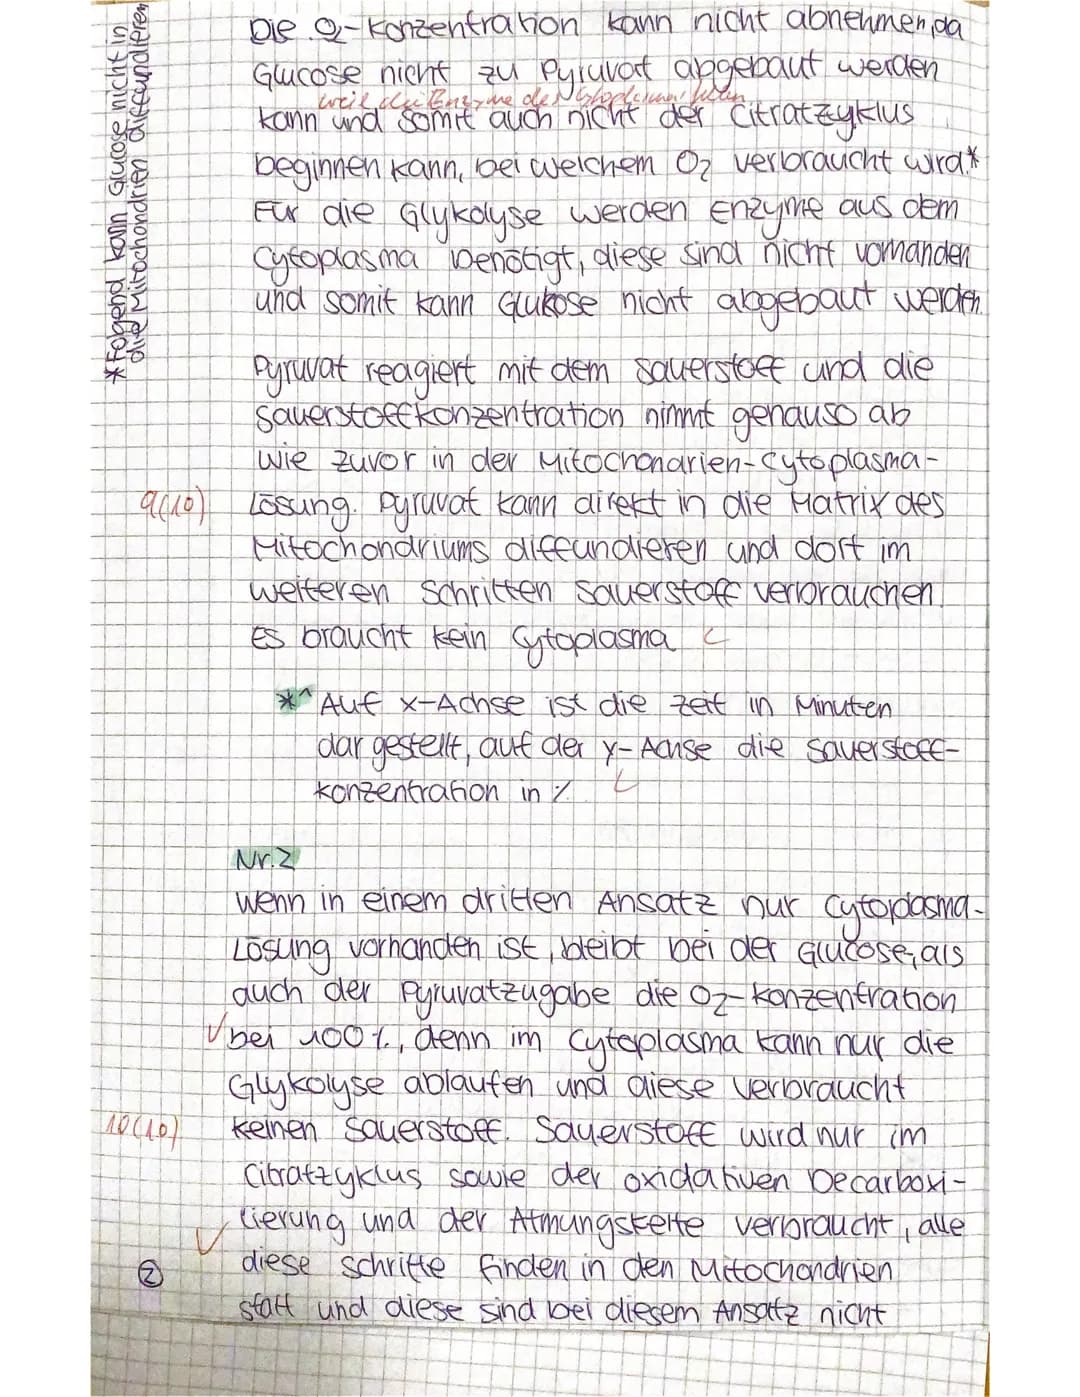 Die O₂-Konzentration kann nicht abnehmen, da
Glucose nicht zu Pyruvat abgebaut werden
weil die Enzyme des Cytoplasmas fehlen
kann und somit auch nicht der Citratzyklus
beginnen kann, bei welchem O₂ verbraucht wird.*
Für die Glykolyse werden Enzyme aus dem
Cytoplasma benötigt, diese sind nicht vorhanden
und somit kann Glukose nicht abgebaut werden.
* Folgend kann Glucose nicht in
die Mitochondrien diffundieren
Pyruvat reagiert mit dem Sauerstoff und die
Sauerstoffkonzentration nimmt genauso ab
wie zuvor in der Mitochondrien-Cytoplasma-
9(10)
Lösung. Pyruvat kann direkt in die Matrix des
Mitochondriums diffundieren und dort im
weiteren Schritten Sauerstoff verbrauchen.
Es braucht kein Cytoplasma
*^ Auf x-Achse ist die Zeit in Minuten
dargestellt, auf der y-Achse die Sauerstoff-
konzentration in %
Nr.2
Wenn in einem dritten Ansatz nur Cytoplasma-
Lösung vorhanden ist, bleibt bei der Glucose, als
auch der Pyruvatzugabe die O₂-Konzentration
✓ bei 100%, denn im Cytoplasma kann nur die
Glykolyse ablaufen und diese verbraucht
10(10)
keinen Sauerstoff. Sauerstoff wird nur im
Citratzyklus sowie der oxidativen Decarboxi-
lierung und der Atmungskette verbraucht, alle
✓ diese Schritte finden in den Mitochondrien
②
statt und diese sind bei diesem Ansatz nicht